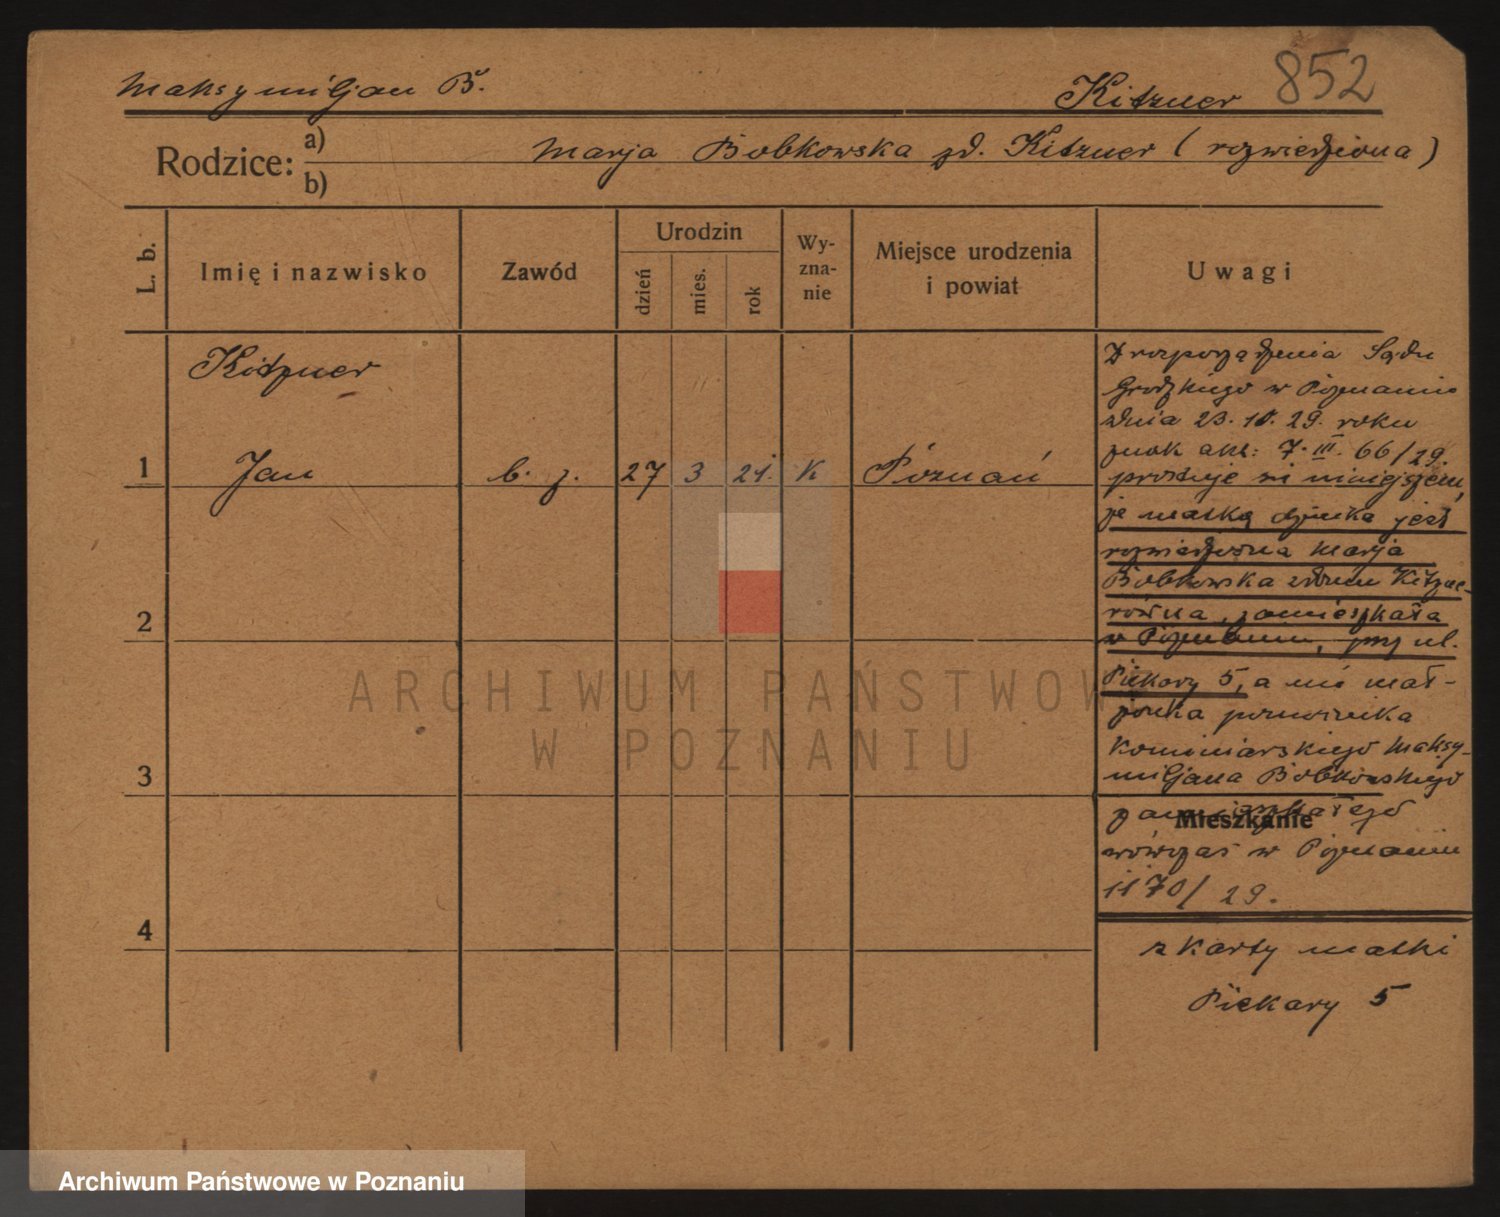 Maksymiljan B.
Kitzner 852
Rodzice: a) Marja Bobkowska zd. Kitzner (rozwiedziona)
b)
L. b.
Imię i nazwisko
Zawód
Urodzin
dzień
mies.
rok
Wy-
zna-
nie
Miejsce urodzenia
i powiat
Uwagi
Kitzner
1 Jan b. z. 27 3 21. K Poznań
2
3
4
Z rozporządzenia Sądu
Grodzkiego w Poznaniu
dnia 23. 10. 29. roku
znak akt: 7. III. 66/29.
prostuje się niniejszem,
że matką dziecka jest
rozwiedziona Marja
Bobkowska z domu Kitzne-
równa, zamieszkała
w Poznaniu, przy ul.
Piekary 5, a nie mał-
żonka pomocnika
Kominiarskiego Maksy-
miljana Bobkowskiego
zamieszkałego
Mieszkanie
wówczas w Poznaniu
1170/29.
z karty matki
Piekary 5
ARCHIWUM PAŃSTWOW
W POZNANIU
Archiwum Państwowe w Poznaniu